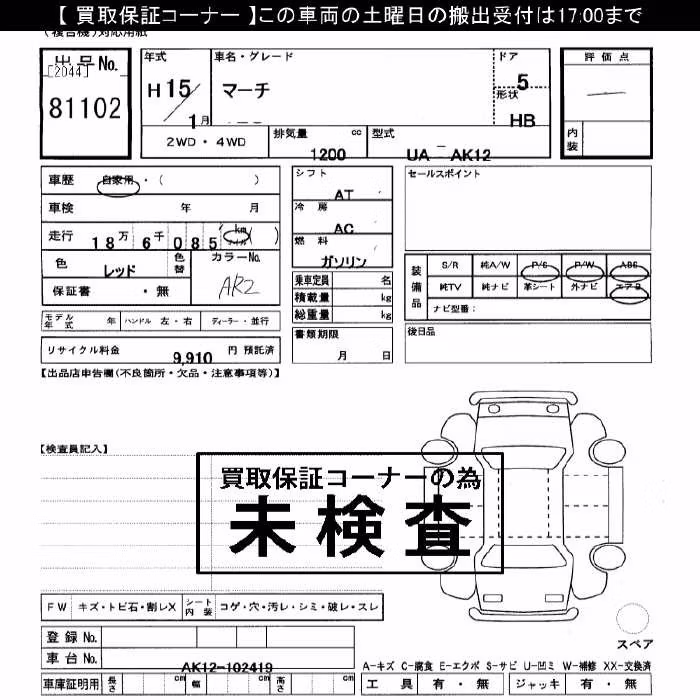 【 買取保証コーナー 】この車両の土曜日の搬出受付は17:00まで
(複合機)対応用紙
出品No.
[2044]
81102
年式
H 15/1月
車名・グレード
マーチ
ドア
5
形状
HB
評価点
内装
2WD・4WD
排気量 cc
1200
型式
UA - AK12
車歴 自家用・( )
車検 年 月
走行 18万 6千 085 km
色
レッド
色替
カラーNo.
AR2
保証書 ・無
シフト
AT
冷房
AC
燃料
ガソリン
乗車定員 名
積載量 kg
総重量 kg
セールスポイント
装備品
S/R 純A/W P/S P/W ABS
純TV 純ナビ 革シート 外ナビ エアB
ナビ型番:
モデル年式 年 ハンドル 左・右 ディーラー・並行
書類期限
月 日
後日品
リサイクル料金 9,910 円 預託済
【出品店申告欄(不良箇所・欠品・注意事項等)】
【検査員記入】
買取保証コーナーの為
未検査
FW キズ・トビ石・割レX シート内装 コゲ・穴・汚レ・シミ・破レ・スレ
スペア
登録No.
車台No. AK12-102419
A-キズ C-腐食 E-エクボ S-サビ U-凹ミ W-補修 XX-交換済
車庫証明用 長さ cm 幅 cm 高さ cm
工具 有・無 ジャッキ 有・無